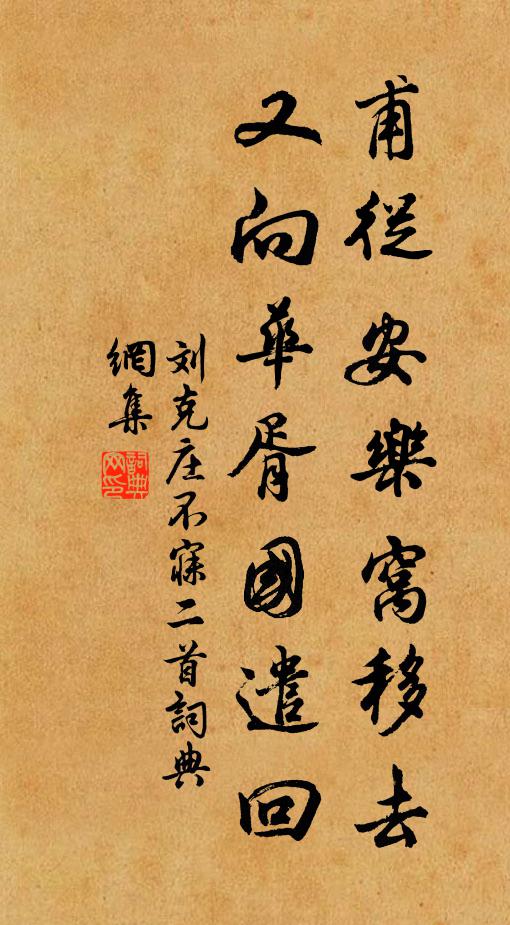 甫從安樂窩移去
又向華胥國遣回
刘克庄不寐二首詞典
網集
詞典網印